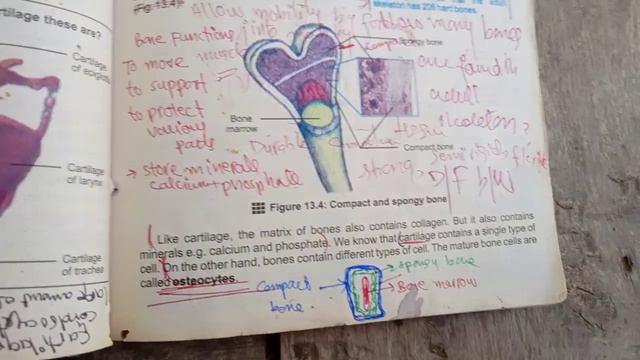 tilage these are?
Cartilage
Cartilage
of larynx
Cartilage
of trachea
skeleton has 206 hard bones.
Allow mobility by fibrous many bones
Bone Functions
To move muscle
to support
to protect
various
store minerals
calcium + phosphate
Spongy bone
compact
are found in
adult
skeleton?
Bone
marrow
Durable
tissue
Compact bone
strong
D/F b/w
Figure 13.4: Compact and spongy bone
Like cartilage, the matrix of bones also contains collagen. But it also contains
minerals e.g. calcium and phosphate. We know that cartilage contains a single type of
cell. On the other hand, bones contain different types of cell. The mature bone cells are
called osteocytes.
Compact
bone
spongy bone
Bone marrow